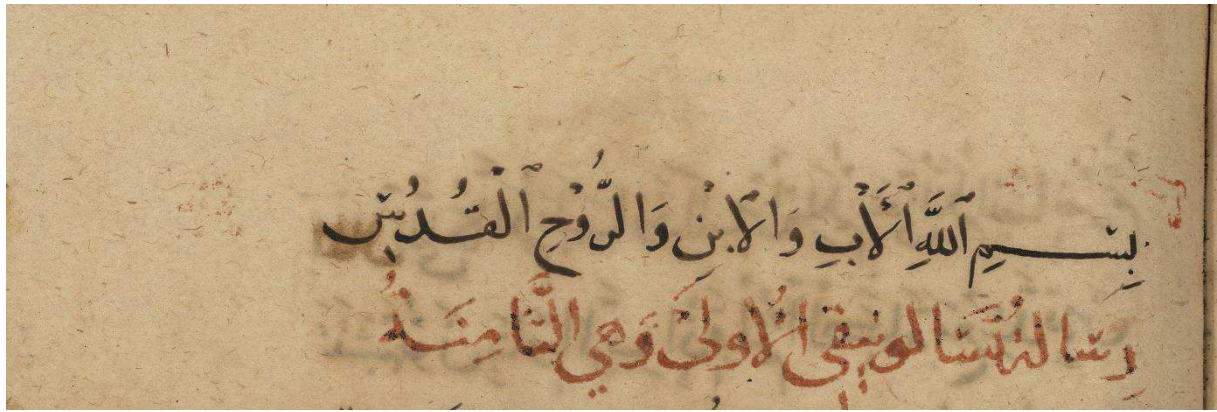 بِسْمِ ٱللَّهِ ٱلْأَبِ وَٱلِابْنِ وَالرُّوْحِ ٱلْقُدُسِ
رِسَالَةُ تَسَالُونِيقِى الْأُولَىٰ وَهِي الثَّامِنَةُ